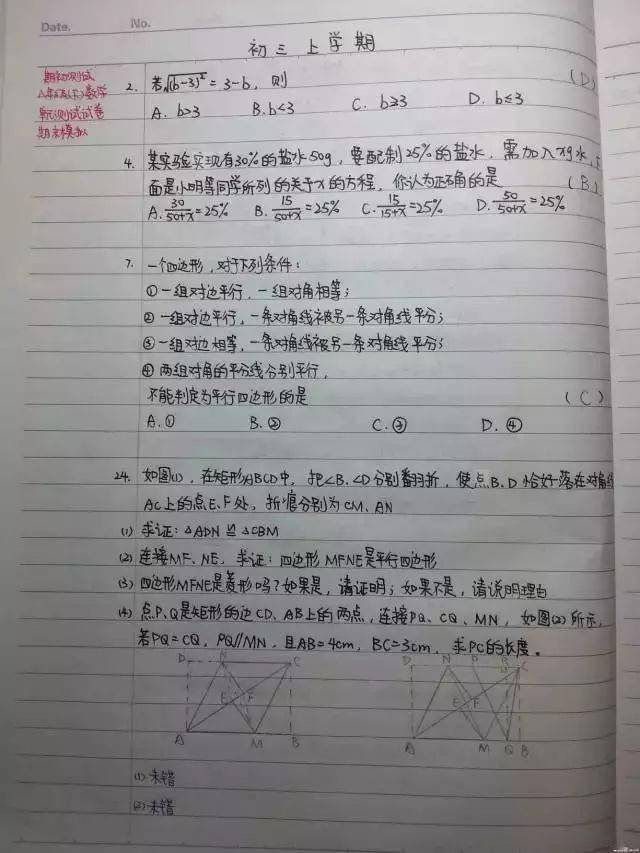 Date. No.
初三上学期
期初测试
八年级(下)数学
单元测试试卷
期末模拟
2. 若√(b-3)² = 3-b, 则 (D)
A. b>3 B. b<3 C. b≥3 D. b≤3
4. 某实验室现有30%的盐水50g, 要配制25%的盐水, 需加入xg水, 下
面是小明等同学所列的关于x的方程, 你认为正确的是 (B)
A. 30/50+x=25% B. 15/50+x=25% C. 15/15+x=25% D. 50/50+x=25%
7. 一个四边形, 对于下列条件:
①一组对边平行, 一组对角相等;
②一组对边平行, 一条对角线被另一条对角线平分;
③一组对边相等, 一条对角线被另一条对角线平分;
④两组对角的平分线分别平行,
不能判定为平行四边形的是 (C)
A. ① B. ② C. ③ D. ④
24. 如图(1), 在矩形ABCD中, 把∠B、∠D分别翻折, 使点B、D恰好落在对角线
AC上的点E、F处, 折痕分别为CM、AN
(1) 求证: △ADN≌△CBM
(2) 连接MF、NE, 求证: 四边形MFNE是平行四边形
(3) 四边形MFNE是菱形吗? 如果是, 请证明; 如果不是, 请说明理由
(4) 点P、Q是矩形的边CD、AB上的两点, 连接PQ、CQ、MN, 如图(2)所示,
若PQ=CQ, PQ//MN, 且AB=4cm, BC=3cm, 求PC的长度。
D N C D N P C
E F E F
A M B A M Q B
(1) 未错
(2) 未错